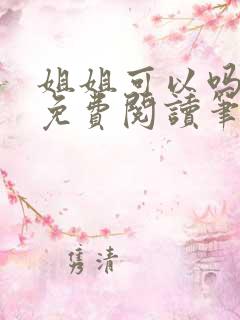 姐姐可以吗
免費閱讀筆
雋清